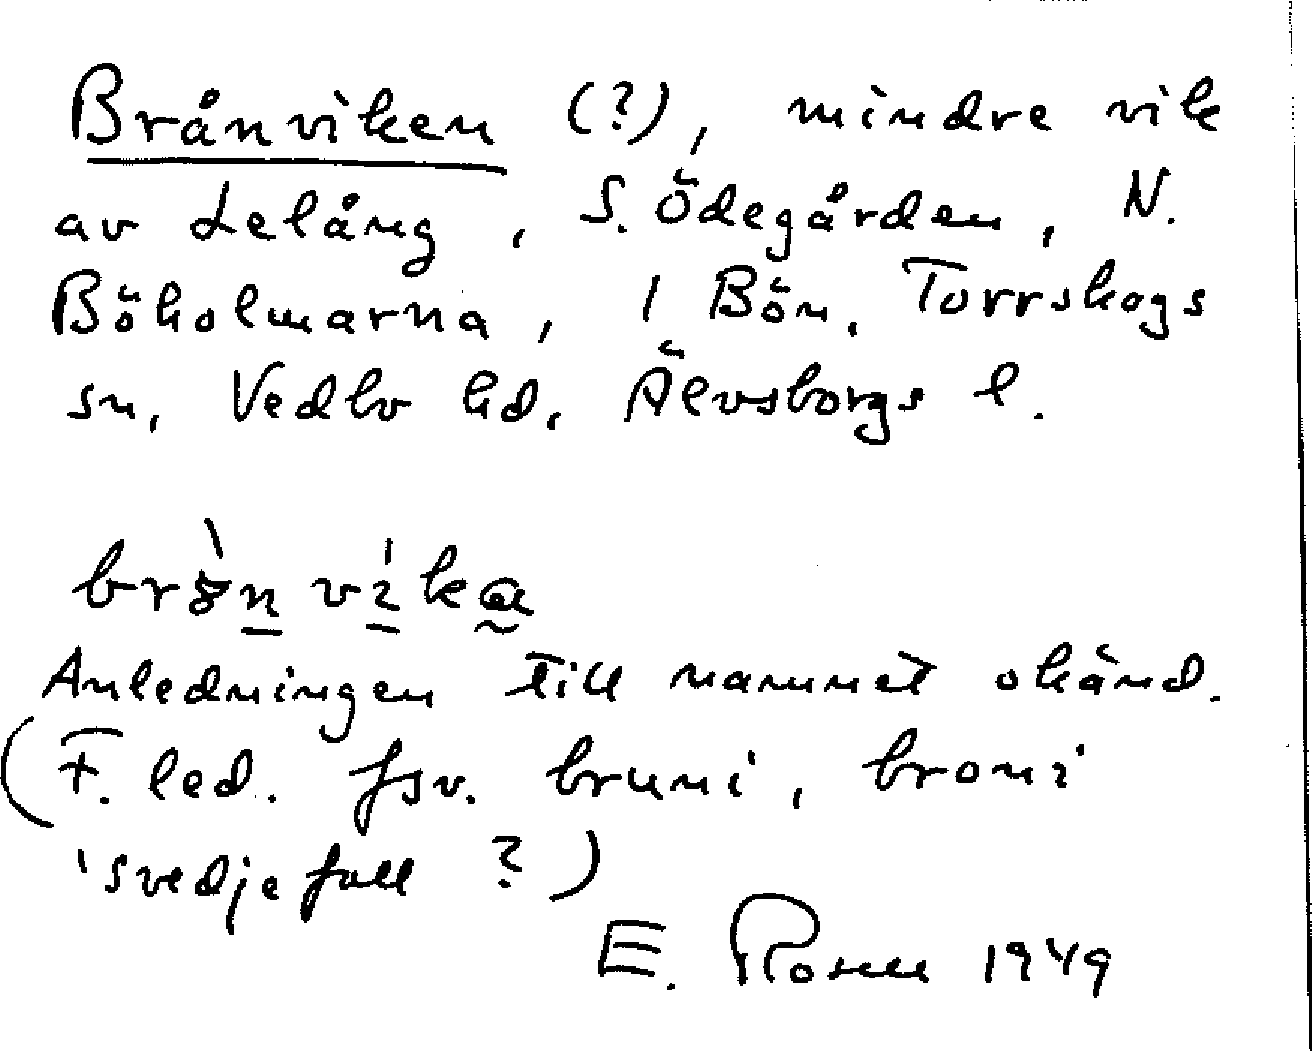 Brånviken (?), mindre vik
av Lelång, S. Ödegården, N.
Böholmarna, / Bön, Torrskogs
sn, Vedbo hd, Älvsborgs l.
Anledningen till namnet okänd.
(F. led. fsv. bruni, broni
'svedjefall ?)
E. Rosell 1949